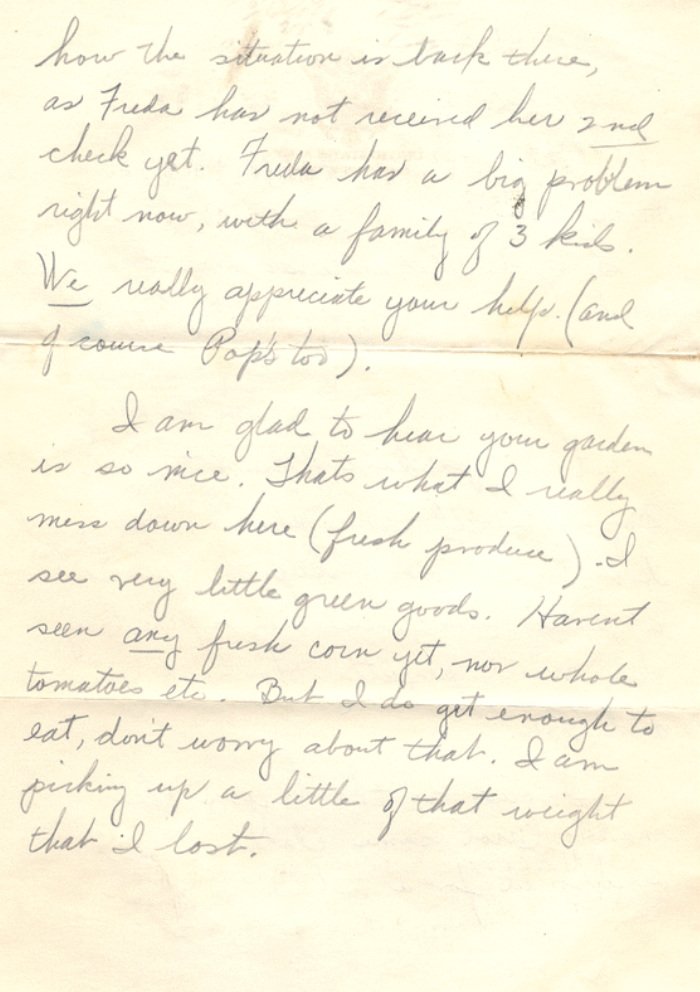 how the situation is back there,
as Freda has not received her 2nd
check yet. Freda has a big problem
right now, with a family of 3 kids.
We really appreciate your help. (and
of course Pop's too).
I am glad to hear your garden
is so nice. Thats what I really
miss down here (fresh produce). I
see very little green goods. Havent
seen any fresh corn yet, nor whole
tomatoes etc. But I do get enough to
eat, don't worry about that. I am
picking up a little of that weight
that I lost.